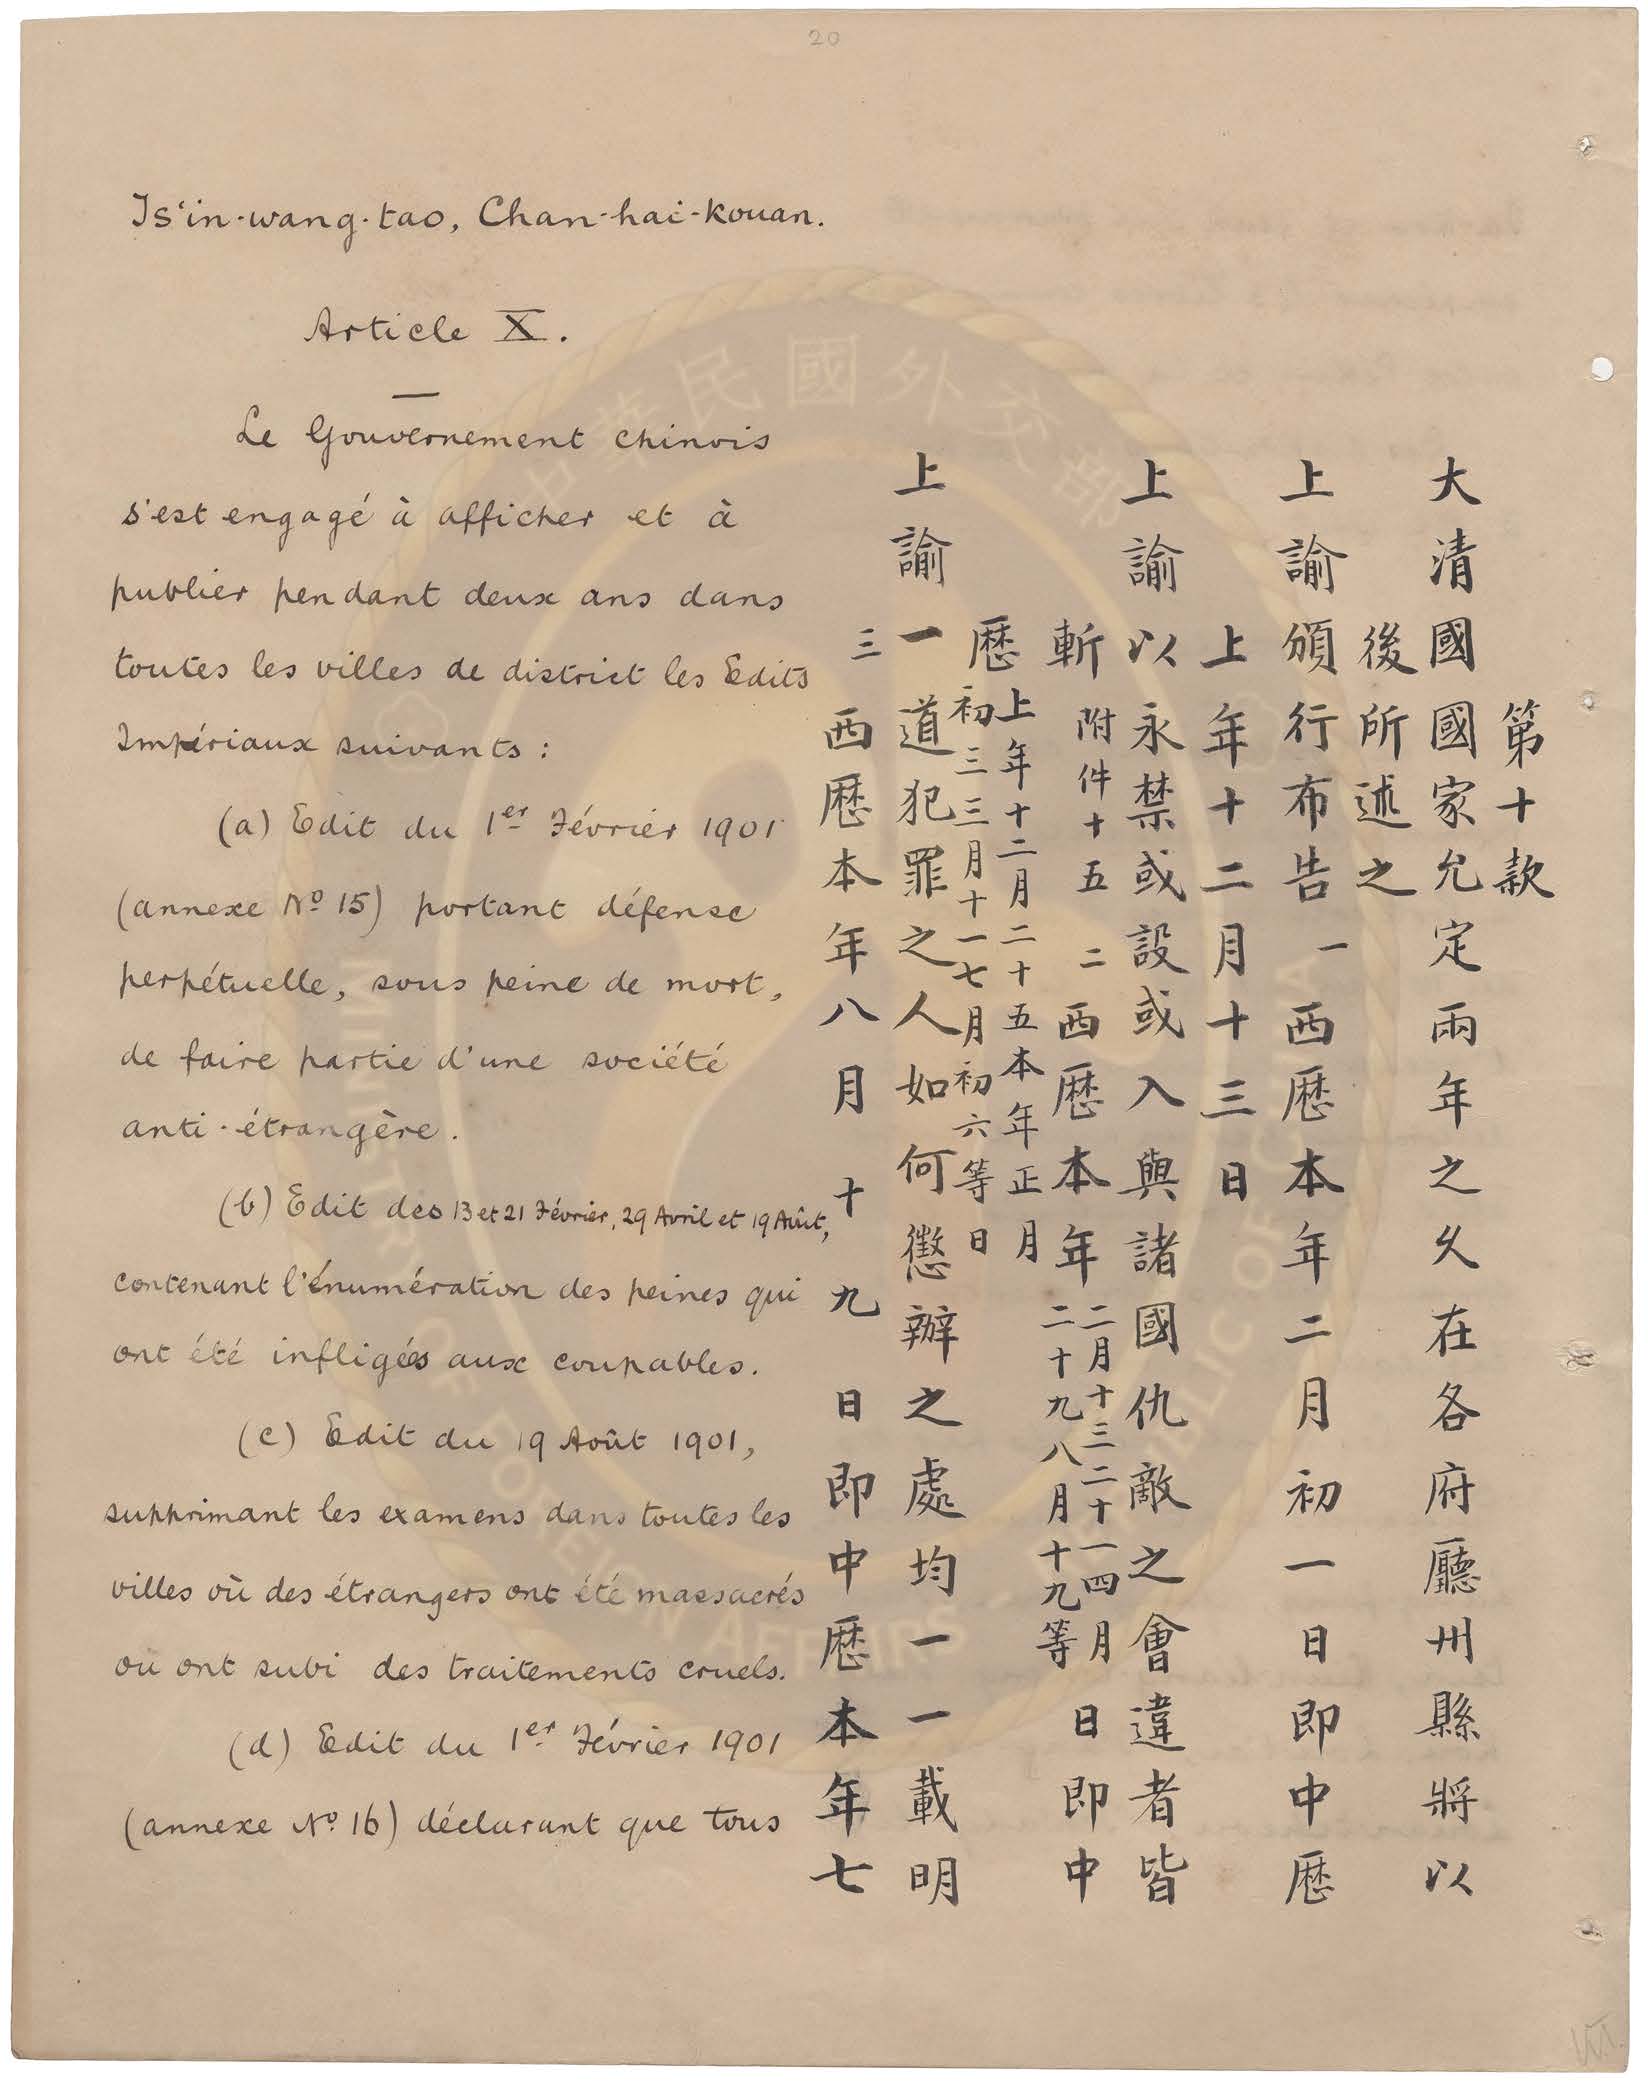 20
Ts'in-wang-tao, Chan-hai-kouan.
Article X.
Le Gouvernement chinois
s'est engagé à afficher et à
publier pendant deux ans dans
toutes les villes de district les Edits
Impériaux suivants :
(a) Edit du 1er Février 1901
(annexe No 15) portant défense
perpétuelle, sous peine de mort,
de faire partie d'une société
anti-étrangère.
(b) Edit des 13 et 21 Février, 29 Avril et 19 Août,
contenant l'énumération des peines qui
ont été infligées aux coupables.
(c) Edit du 19 Août 1901,
supprimant les examens dans toutes les
villes où des étrangers ont été massacrés
ou ont subi des traitements cruels.
(d) Edit du 1er Février 1901
(annexe No 16) déclarant que tous
第十款
大清國國家允定兩年之久在各府廳州縣將以
後所述之
上諭頒行布告一西歷本年二月初一日即中歷
上年十二月十三日
上諭以永禁或設或入與諸國仇敵之會違者皆
斬附件十五二西歷本年二月十三二十一四月二十九八月十九等日即中
歷上年十二月二十五本年正月初三三月十一七月初六等日
上諭一道犯罪之人如何懲辦之處均一一載明
三西歷本年八月十九日即中歷本年七
中華民國外交部
MINISTRY OF FOREIGN AFFAIRS REPUBLIC OF CHINA